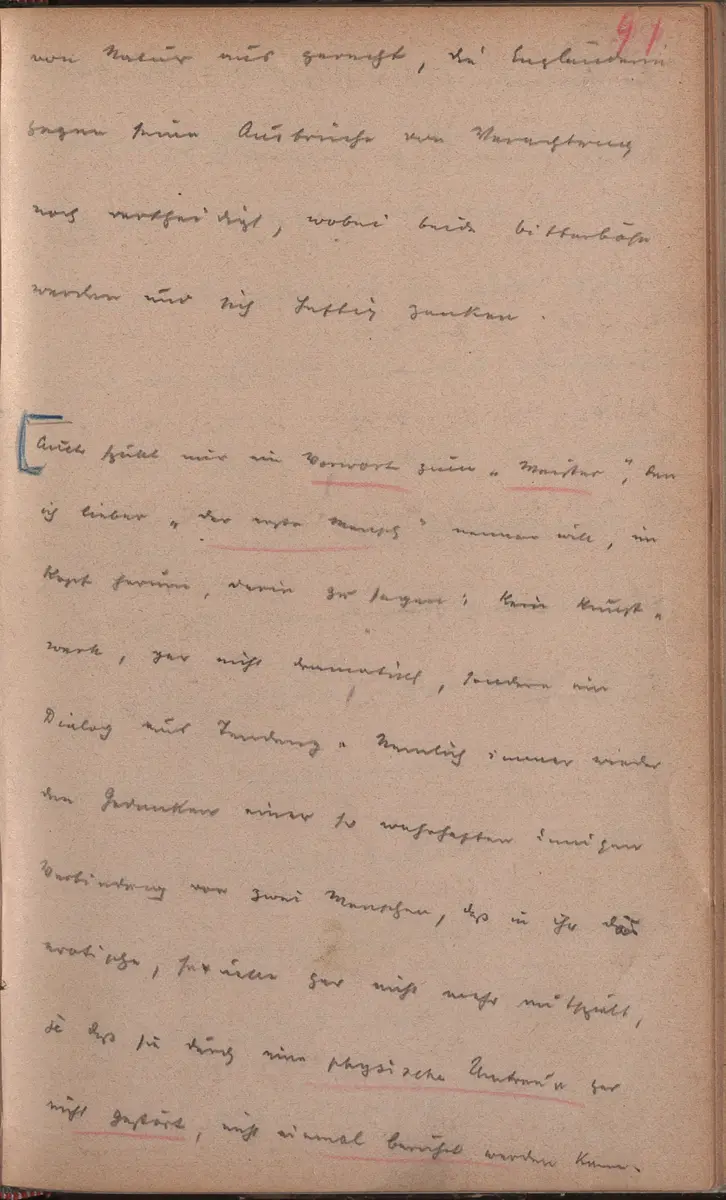 91
von Natur aus gerecht, die Engländerin
gegen seine Ausbrüche von Verachtung
noch vertheidigt, wobei beide bitterböse
werden und sich heftig zanken.
Auch spukt mir ein Vorwort zum „Meister“, den
ich lieber „der erste Mensch“ nennen will, im
Kopf herum, darin zu sagen: kein Kunst-
werk, gar nicht dramatisch, sondern ein
Dialog aus Tendenz. Nemlich immer wieder
den Gedanken einer so wahrhaften innigen
Verbindung von zwei Menschen, daß in ihr das
erotische, sexuelle gar nicht mehr mitspielt,
ja daß sie durch eine physische Untreue gar
nicht gestört, nicht einmal berührt werden kann.